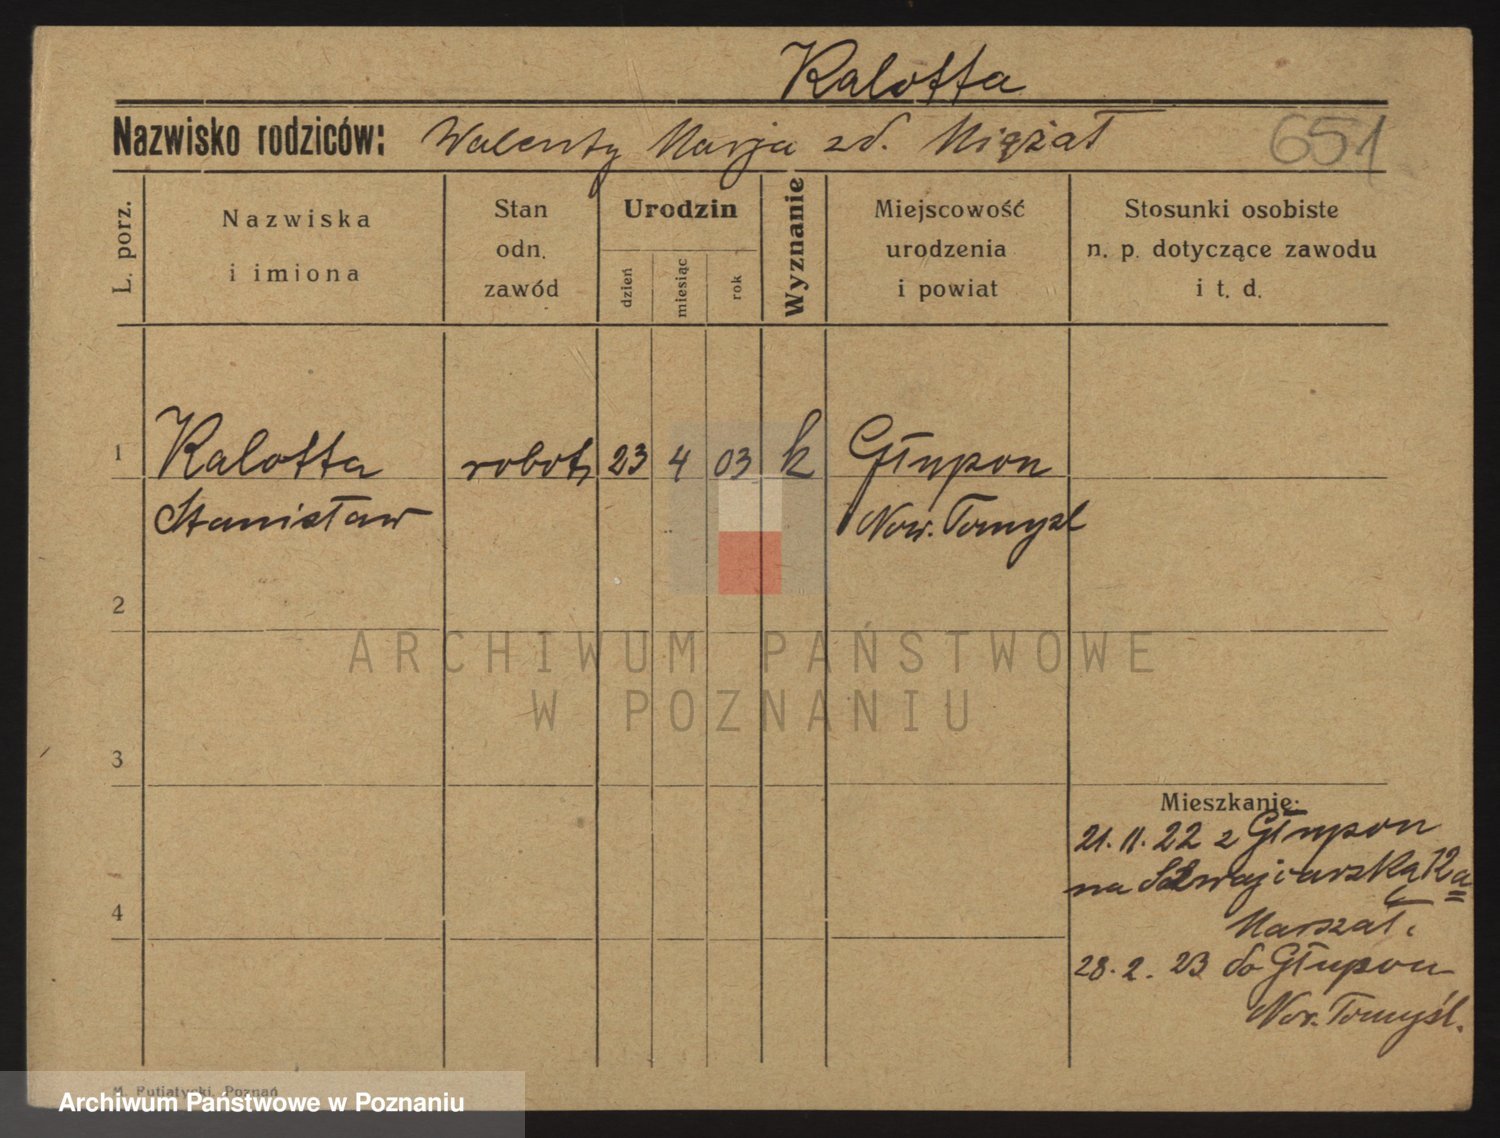 Kalotta
Nazwisko rodziców: Walenty Marja zd. Miężał
651
L. porz.
Nazwiska
i imiona
Stan
odn.
zawód
Urodzin
dzień
miesiąc
rok
Wyznanie
Miejscowość
urodzenia
i powiat
Stosunki osobiste
n. p. dotyczące zawodu
i t. d.
1 Kalotta robotn 23 4 03 k Głupon
Stanisław Now. Tomyśl
2
ARCHIWUM PAŃSTWOWE
W POZNANIU
3
Mieszkanie:
21. 11. 22 z Głupon
na Szwajcarską 12a
4
Marszał.
28. 2. 23 do Głupon
Now. Tomyśl.
M. Putiatycki, Poznań
Archiwum Państwowe w Poznaniu